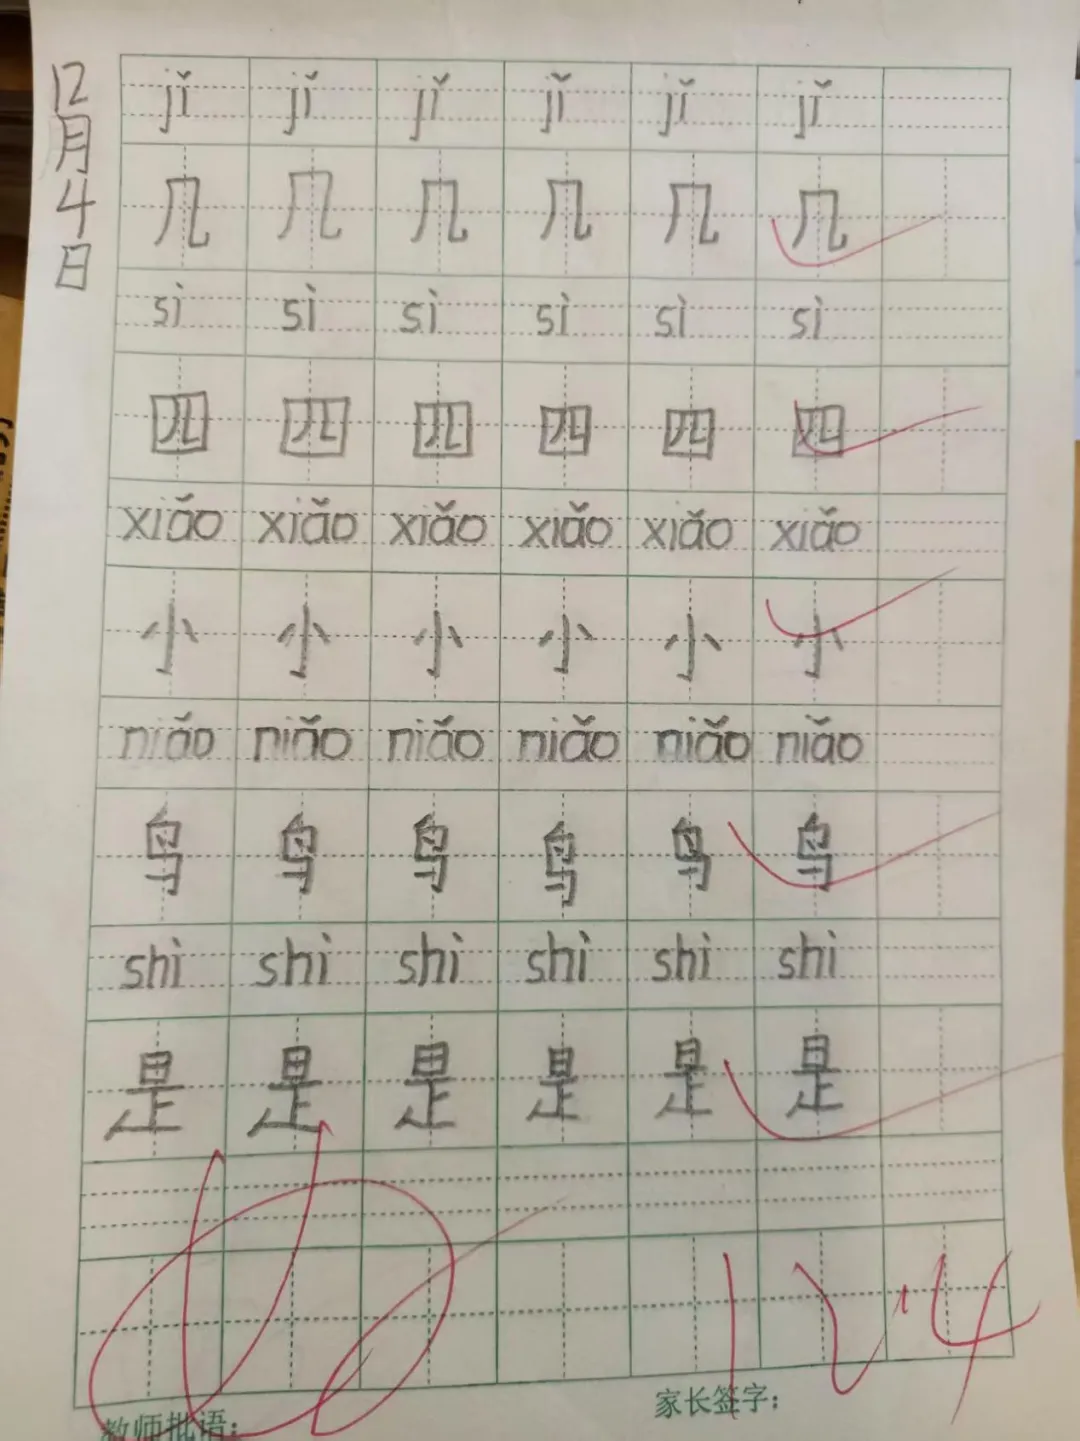 12月4日
jǐ jǐ jǐ jǐ jǐ jǐ
几 几 几 几 几 几
sì sì sì sì sì sì
四 四 四 四 四 四
xiǎo xiǎo xiǎo xiǎo xiǎo xiǎo
小 小 小 小 小 小
niǎo niǎo niǎo niǎo niǎo niǎo
鸟 鸟 鸟 鸟 鸟 鸟
shì shì shì shì shì shì
是 是 是 是 是 是
12.4
教师批语: 家长签字: